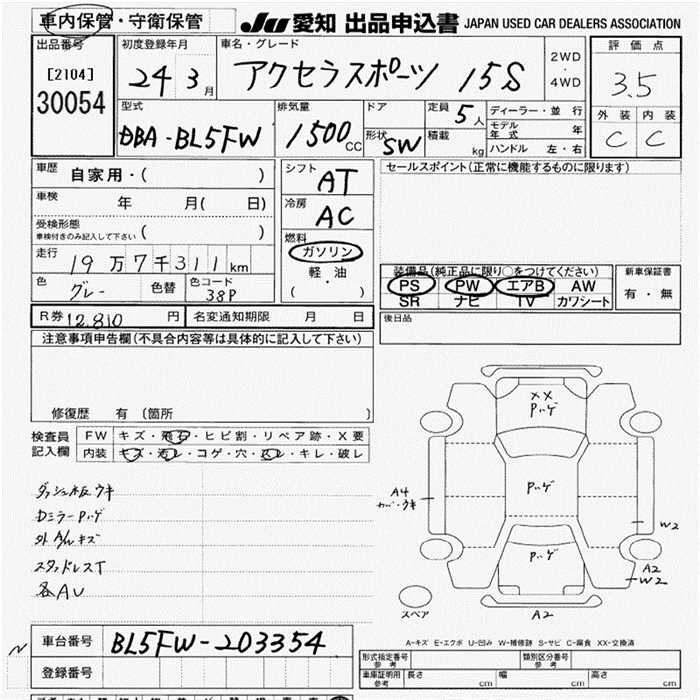 車内保管・守衛保管 JU 愛知 出品申込書 JAPAN USED CAR DEALERS ASSOCIATION
出品番号 [2104] 30054
初度登録年月 24 3月
車名・グレード アクセラスポーツ 15S
2WD ・ 4WD
評価点 3.5
外装 内装
C C
型式 DBA-BL5FW
排気量 1500cc
ドア 形状 SW
定員 5人
積載 kg
ディーラー・並行
モデル年式 年
ハンドル 左・右
車歴 自家用・( )
車検 年 月( 日)
受検形態 車検付きのみ記入して下さい ( )
走行 19万7千311km
色 グレー 色替 色コード 38P
シフト AT
冷房 AC
燃料 ガソリン
軽・油
( )
セールスポイント(正常に機能するものに限ります)
装備品(純正品に限り○をつけてください)
PS PW エアB AW
SR ナビ TV カワシート
新車保証書
有・無
R券 12,810 円 名変通知期限 月 日
後日品
注意事項申告欄(不具合内容等は具体的に記入して下さい)
修復歴 有 〔箇所 〕
検査員記入欄
FW キズ・飛石・ヒビ割・リペア跡・X要
内装 キズ・汚レ・コゲ・穴・スレ・キレ・破レ
ダッシュ板ウキ
DミラーPハゲ
外A/Wキズ
スタッドレスT
各AU
XX
Pハゲ
Pハゲ
Pハゲ
A4
カバーウキ
W2
A2
W2
A2
スペア
車台番号 BL5FW-203354
登録番号
A-キズ E-エクボ U-凹み W-補修跡 S-サビ C-腐食 XX-交換済
形式指定番号 参考 類別区分番号 参考
車庫証明用 参考 長さ cm 幅 cm 高さ cm